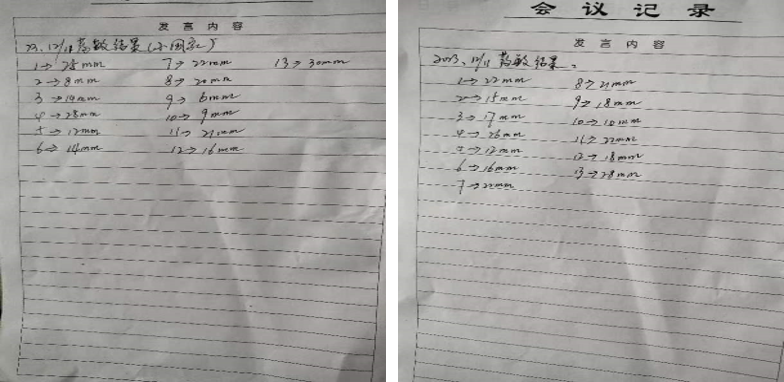 发言内容
23.12/18 药敏结果(小周家)
1→25mm 7→22mm 13→30mm
2→8mm 8→20mm
3→19mm 9→6mm
4→28mm 10→9mm
5→12mm 11→21mm
6→14mm 12→16mm
会议记录
发言内容
12/18 药敏结果.
1→22mm 8→21mm
2→15mm 9→18mm
3→17mm 10→10mm
4→26mm 11→22mm
5→12mm 12→18mm
6→16mm 13→28mm
7→22mm